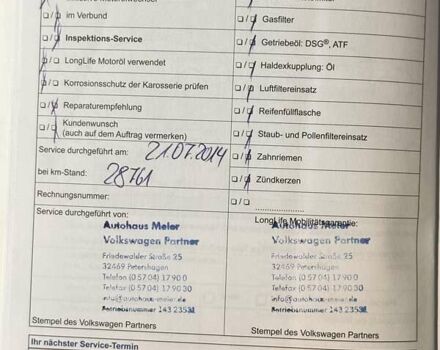 im Verbund
Gasfilter
Inspektions-Service
Getriebeöl: DSG®, ATF
LongLife Motoröl verwendet
Haldexkupplung: Öl
Korrosionsschutz der Karosserie prüfen
Luftfiltereinsatz
Reparaturempfehlung
Reifenfüllflasche
Kundenwunsch
(auch auf dem Auftrag vermerken)
Staub- und Pollenfiltereinsatz
Service durchgeführt am: 21.07.2014
Zahnriemen
bei km-Stand: 28761
Zündkerzen
Rechnungsnummer:
Service durchgeführt von:
LongLife Mobilitätsgarantie:
Autohaus Meier
Volkswagen Partner
Friedewalder Straße 25
32469 Petershagen
Telefon (0 57 04) 179 00
Telefax (0 57 04) 179 0 30
info@autohaus-meier.de
Betriebsnummer 143 23531
Autohaus Meier
Volkswagen Partner
Friedewalder Straße 25
32469 Petershagen
Telefon (0 57 04) 179 0 0
Telefax (0 57 04) 179 0 30
info@autohaus-meier.de
Betriebsnummer 143 23531
Stempel des Volkswagen Partners
Stempel des Volkswagen Partners
Ihr nächster Service-Termin